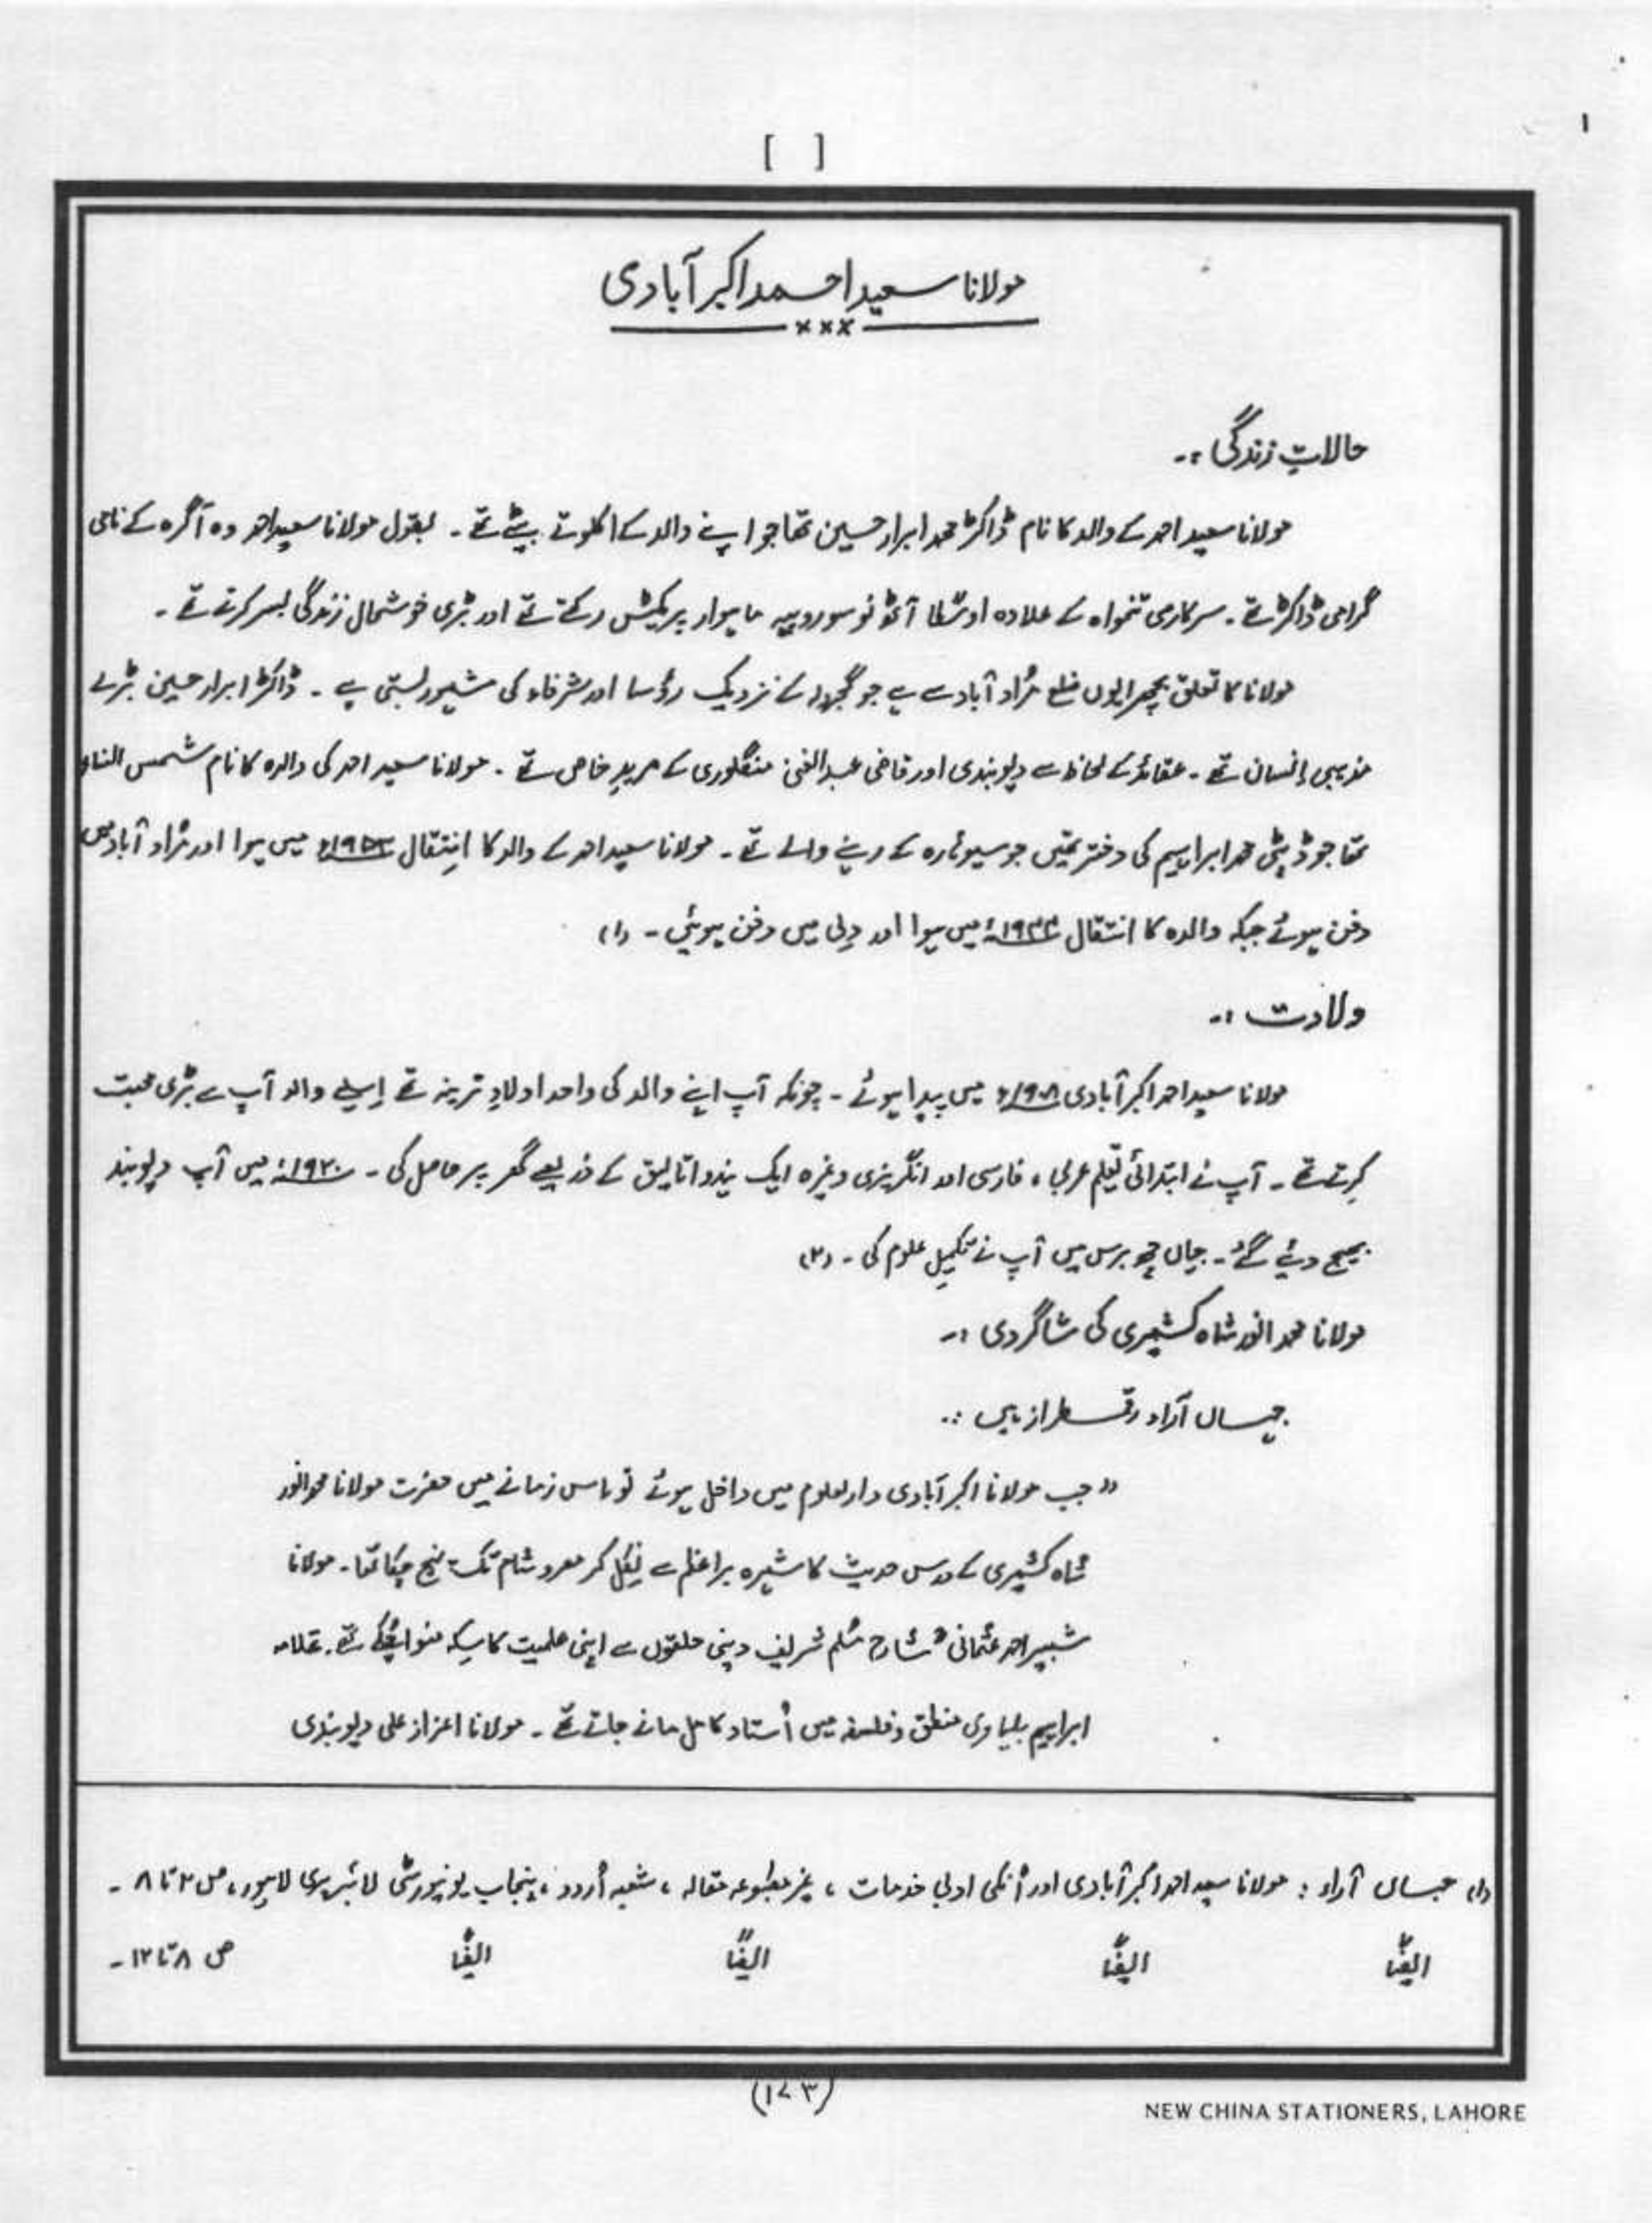 [ ]
۱
مولانا سعید احمد اکبر آبادی
×××
حالاتِ زندگی :۔
مولانا سعید احمد کے والد کا نام ڈاکٹر محمد ابرار حسین تھا جو اپنے والد کے اکلوتے بیٹے تھے ۔ بقول مولانا سعید احمد وہ آگرہ کے نامی
گرامی ڈاکٹر تھے ۔ سرکاری تنخواہ کے علاوہ اوسطًا آٹھ نو سو روپیہ ماہوار پریکٹس رکھتے تھے اور بڑی خوشحال زندگی بسر کرتے تھے ۔
مولانا کا تعلق بچھرایوں ضلع مُراد آباد سے ہے جو کے نزدیک رؤسا اور شرفاء کی مشہور بستی ہے ۔ ڈاکٹر ابرار حسین بڑے
مذہبی انسان تھے ۔ عقائد کے لحاظ سے دیوبندی اور قاضی عبدالغنی منگلوری کے مریدِ خاص تھے ۔ مولانا سعید احمد کی والدہ کا نام شمس النساء
تھا جو ڈپٹی محمد ابراہیم کی دختر تھیں جو سیوہارہ کے رہنے والے تھے ۔ مولانا سعید احمد کے والد کا اِنتقال میں ہوا اور مُراد آباد میں
دفن ہوئے جبکہ والدہ کا انتقال میں ہوا اور دِلی میں دفن ہوئیں ۔ (۱)
ولادت :۔
مولانا سعید احمد اکبر آبادی ۱۹۰۸ء میں پیدا ہوئے ۔ چونکہ آپ اپنے والد کی واحد اولادِ نرینہ تھے اِسلیے والد آپ سے بڑی محبت
کرتے تھے ۔ آپ نے ابتدائی تعلیم عربی ، فارسی اور انگریزی وغیرہ ایک ہندو اتالیق کے ذریعے گھر پر حاصل کی ۔ ۱۹۲۰ء میں آپ دیوبند
بھیج دیئے گئے ۔ جہاں چھ برس میں آپ نے تکمیلِ علوم کی ۔ (۲)
مولانا محمد انور شاہ کشمیری کی شاگردی :۔
جہاں آراء رقمطراز ہیں :۔
" جب مولانا اکبر آبادی دارلعلوم میں داخل ہوئے تو اس زمانے میں حضرت مولانا محمد انور
شاہ کشمیری کے درس حدیث کا شہرہ براعظم سے نِکل کر مصر و شام تک پہنچ چکا تھا ۔ مولانا
شبیر احمد عثمانی شارح مُسلم شریف دینی حلقوں سے اپنی علمیت کا سِکہ منوا چُکے تھے ۔ علامہ
ابراہیم بلیاوی منطق و فلسفہ میں اُستاد کامل مانے جاتے تھے ۔ مولانا اعزاز علی دیوبندی
(۱) جہاں آراء : مولانا سعید احمد اکبر آبادی اور اُنکی ادبی خدمات ، غیر مطبوعہ مقالہ ، شعبہ اُردو ، پنجاب یونیورسٹی لائبریری لاہور ، ص ۲ تا ۸ ۔
ایضًا ایضًا ایضًا ایضًا ص ۸ تا ۱۲ ۔
(۱۷۳)
NEW CHINA STATIONERS, LAHORE